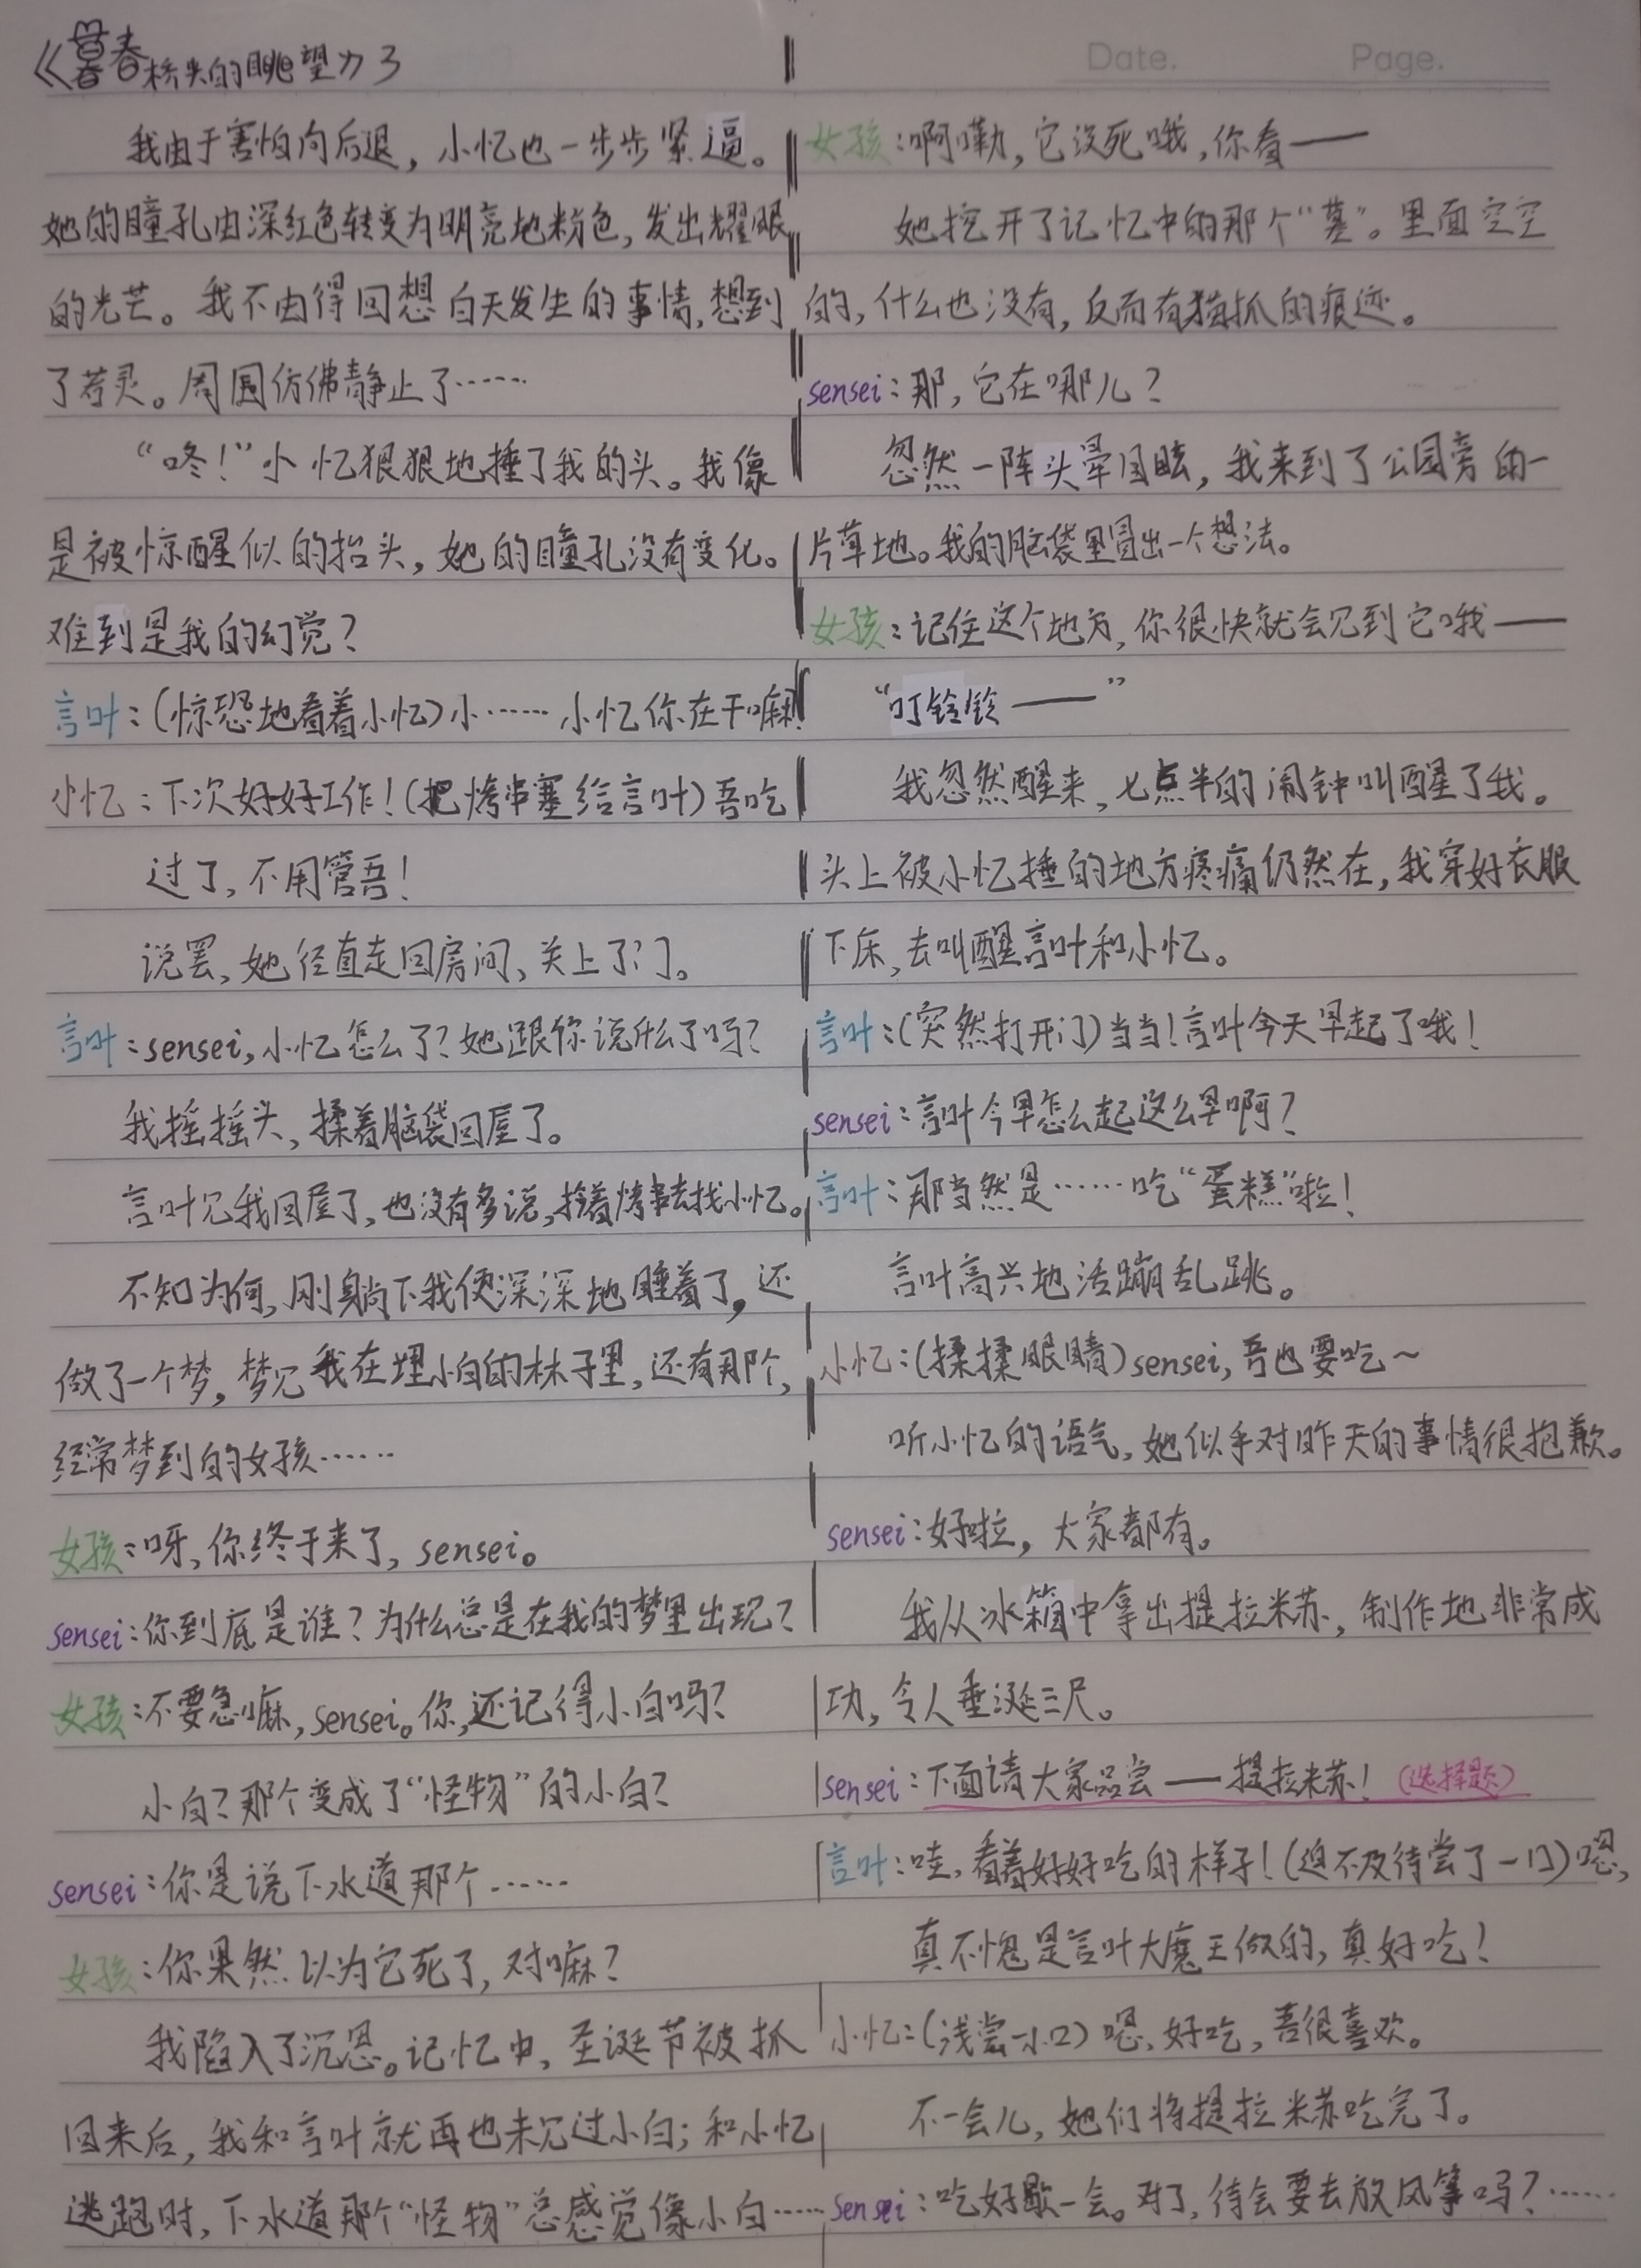 《暮春桥头的眺望》3
Date.
Page.
我由于害怕向后退，小忆也一步步紧逼。
她的瞳孔由深红色转变为明亮地粉色，发出耀眼
的光芒。我不由得回想白天发生的事情，想到
了若灵。周围仿佛静止了……
“咚！”小忆狠狠地捶了我的头。我像
是被惊醒似的抬头，她的瞳孔没有变化。
难到是我的幻觉？
言叶：（惊恐地看着小忆）小……小忆你在干嘛！
小忆：下次好好工作！（把烤串塞给言叶）吾吃
过了，不用管吾！
说罢，她径直走回房间，关上了门。
言叶：sensei，小忆怎么了？她跟你说什么了吗？
我摇摇头，揉着脑袋回屋了。
言叶见我回屋了，也没有多说，拿着烤串去找小忆。
不知为何，刚躺下我便深深地睡着了，还
做了一个梦，梦见我在埋小白的林子里，还有那个，
经常梦到的女孩……
女孩：呀，你终于来了，sensei。
sensei：你到底是谁？为什么总是在我的梦里出现？
女孩：不要急嘛，sensei。你，还记得小白吗？
小白？那个变成了“怪物”的小白？
sensei：你是说下水道那个……
女孩：你果然以为它死了，对嘛？
我陷入了沉思。记忆中，圣诞节被抓
回来后，我和言叶就再也未见过小白；和小忆
逃跑时，下水道那个“怪物”总感觉像小白……
女孩：啊嘞，它没死哦，你看——
她挖开了记忆中的那个“墓”。里面空空
的，什么也没有，反而有猫抓的痕迹。
sensei：那，它在哪儿？
忽然一阵头晕目眩，我来到了公园旁的一
片草地。我的脑袋里冒出一个想法。
女孩：记住这个地方，你很快就会见到它哦——
“叮铃铃——”
我忽然醒来，七点半的闹钟叫醒了我。
头上被小忆捶的地方疼痛仍然在，我穿好衣服
下床，去叫醒言叶和小忆。
言叶：（突然打开门）当当！言叶今天早起了哦！
sensei：言叶今早怎么起这么早啊？
言叶：那当然是……吃“蛋糕”啦！
言叶高兴地活蹦乱跳。
小忆：（揉揉眼睛）sensei，吾也要吃～
听小忆的语气，她似乎对昨天的事情很抱歉。
sensei：好啦，大家都有。
我从冰箱中拿出提拉米苏，制作地非常成
功，令人垂涎三尺。
sensei：下面请大家品尝——提拉米苏！（选择题）
言叶：哇，看着好好吃的样子！（迫不及待尝了一口）嗯，
真不愧是言叶大魔王做的，真好吃！
小忆：（浅尝一小口）嗯，好吃，吾很喜欢。
不一会儿，她们将提拉米苏吃完了。
sensei：吃好歇一会。对了，待会要去放风筝吗？……